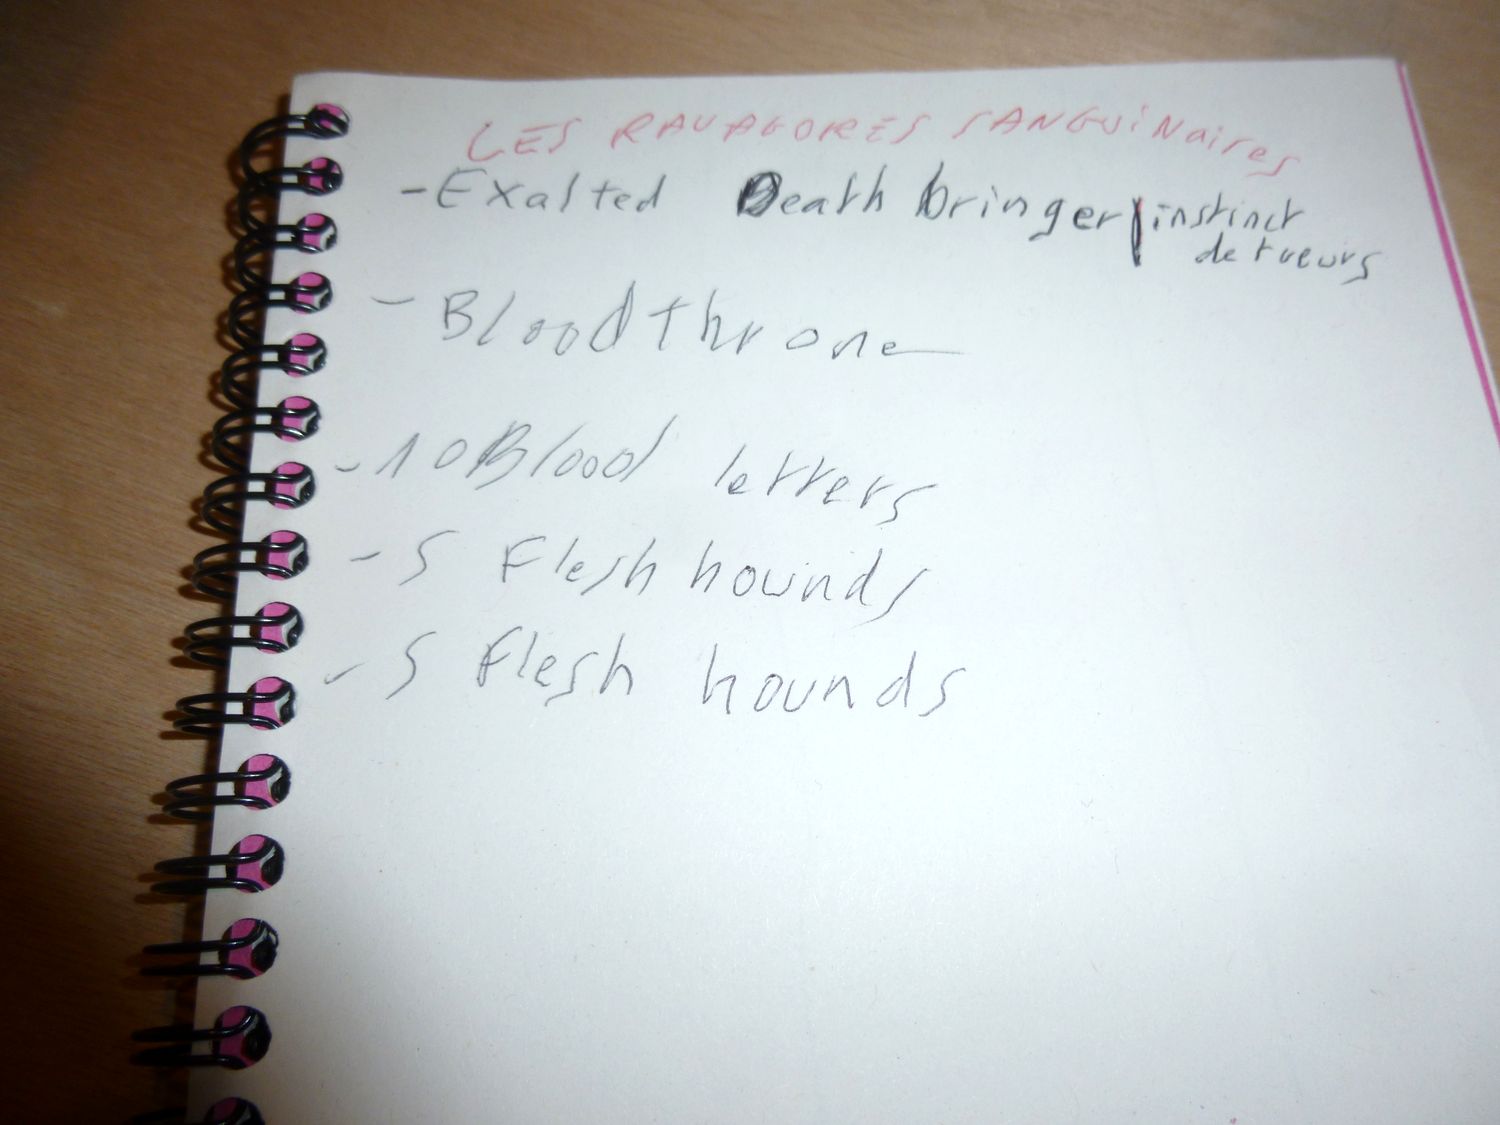 LES RAVAGORES SANGUiNaires
- Exalted Death bringer | instinct
de tueurs
- Blood throne
- 10 Blood letters
- 5 Flesh hounds
- 5 Flesh hounds